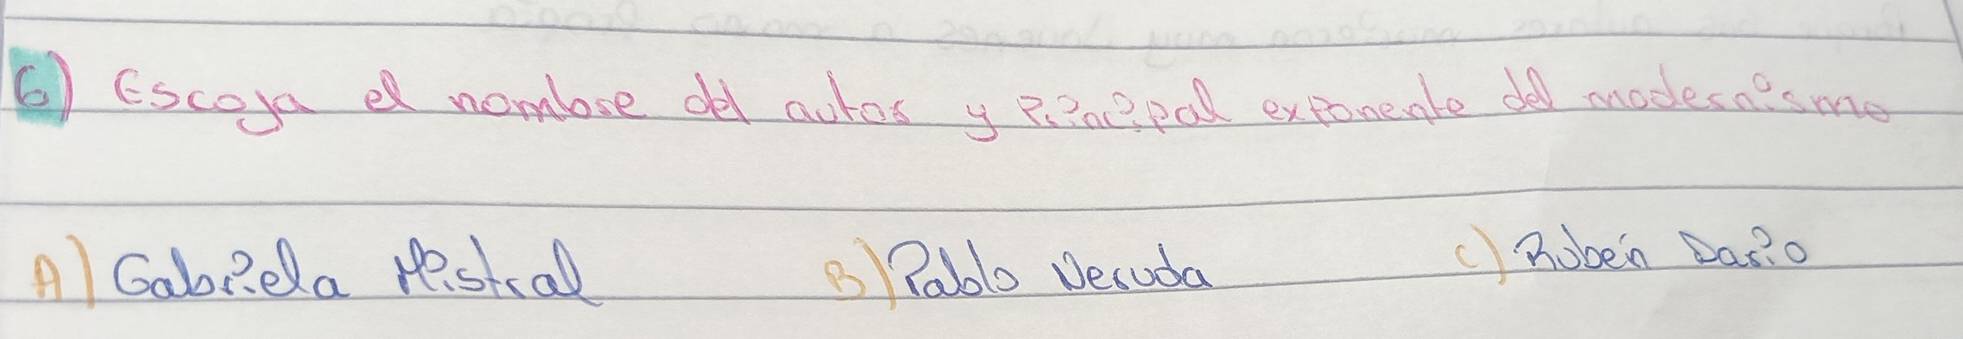 6) Escoja el nombre del autor y Principal exponente del modernismo
A) Gabriela Mistral B) Pablo Neruda C) Rubén Dario